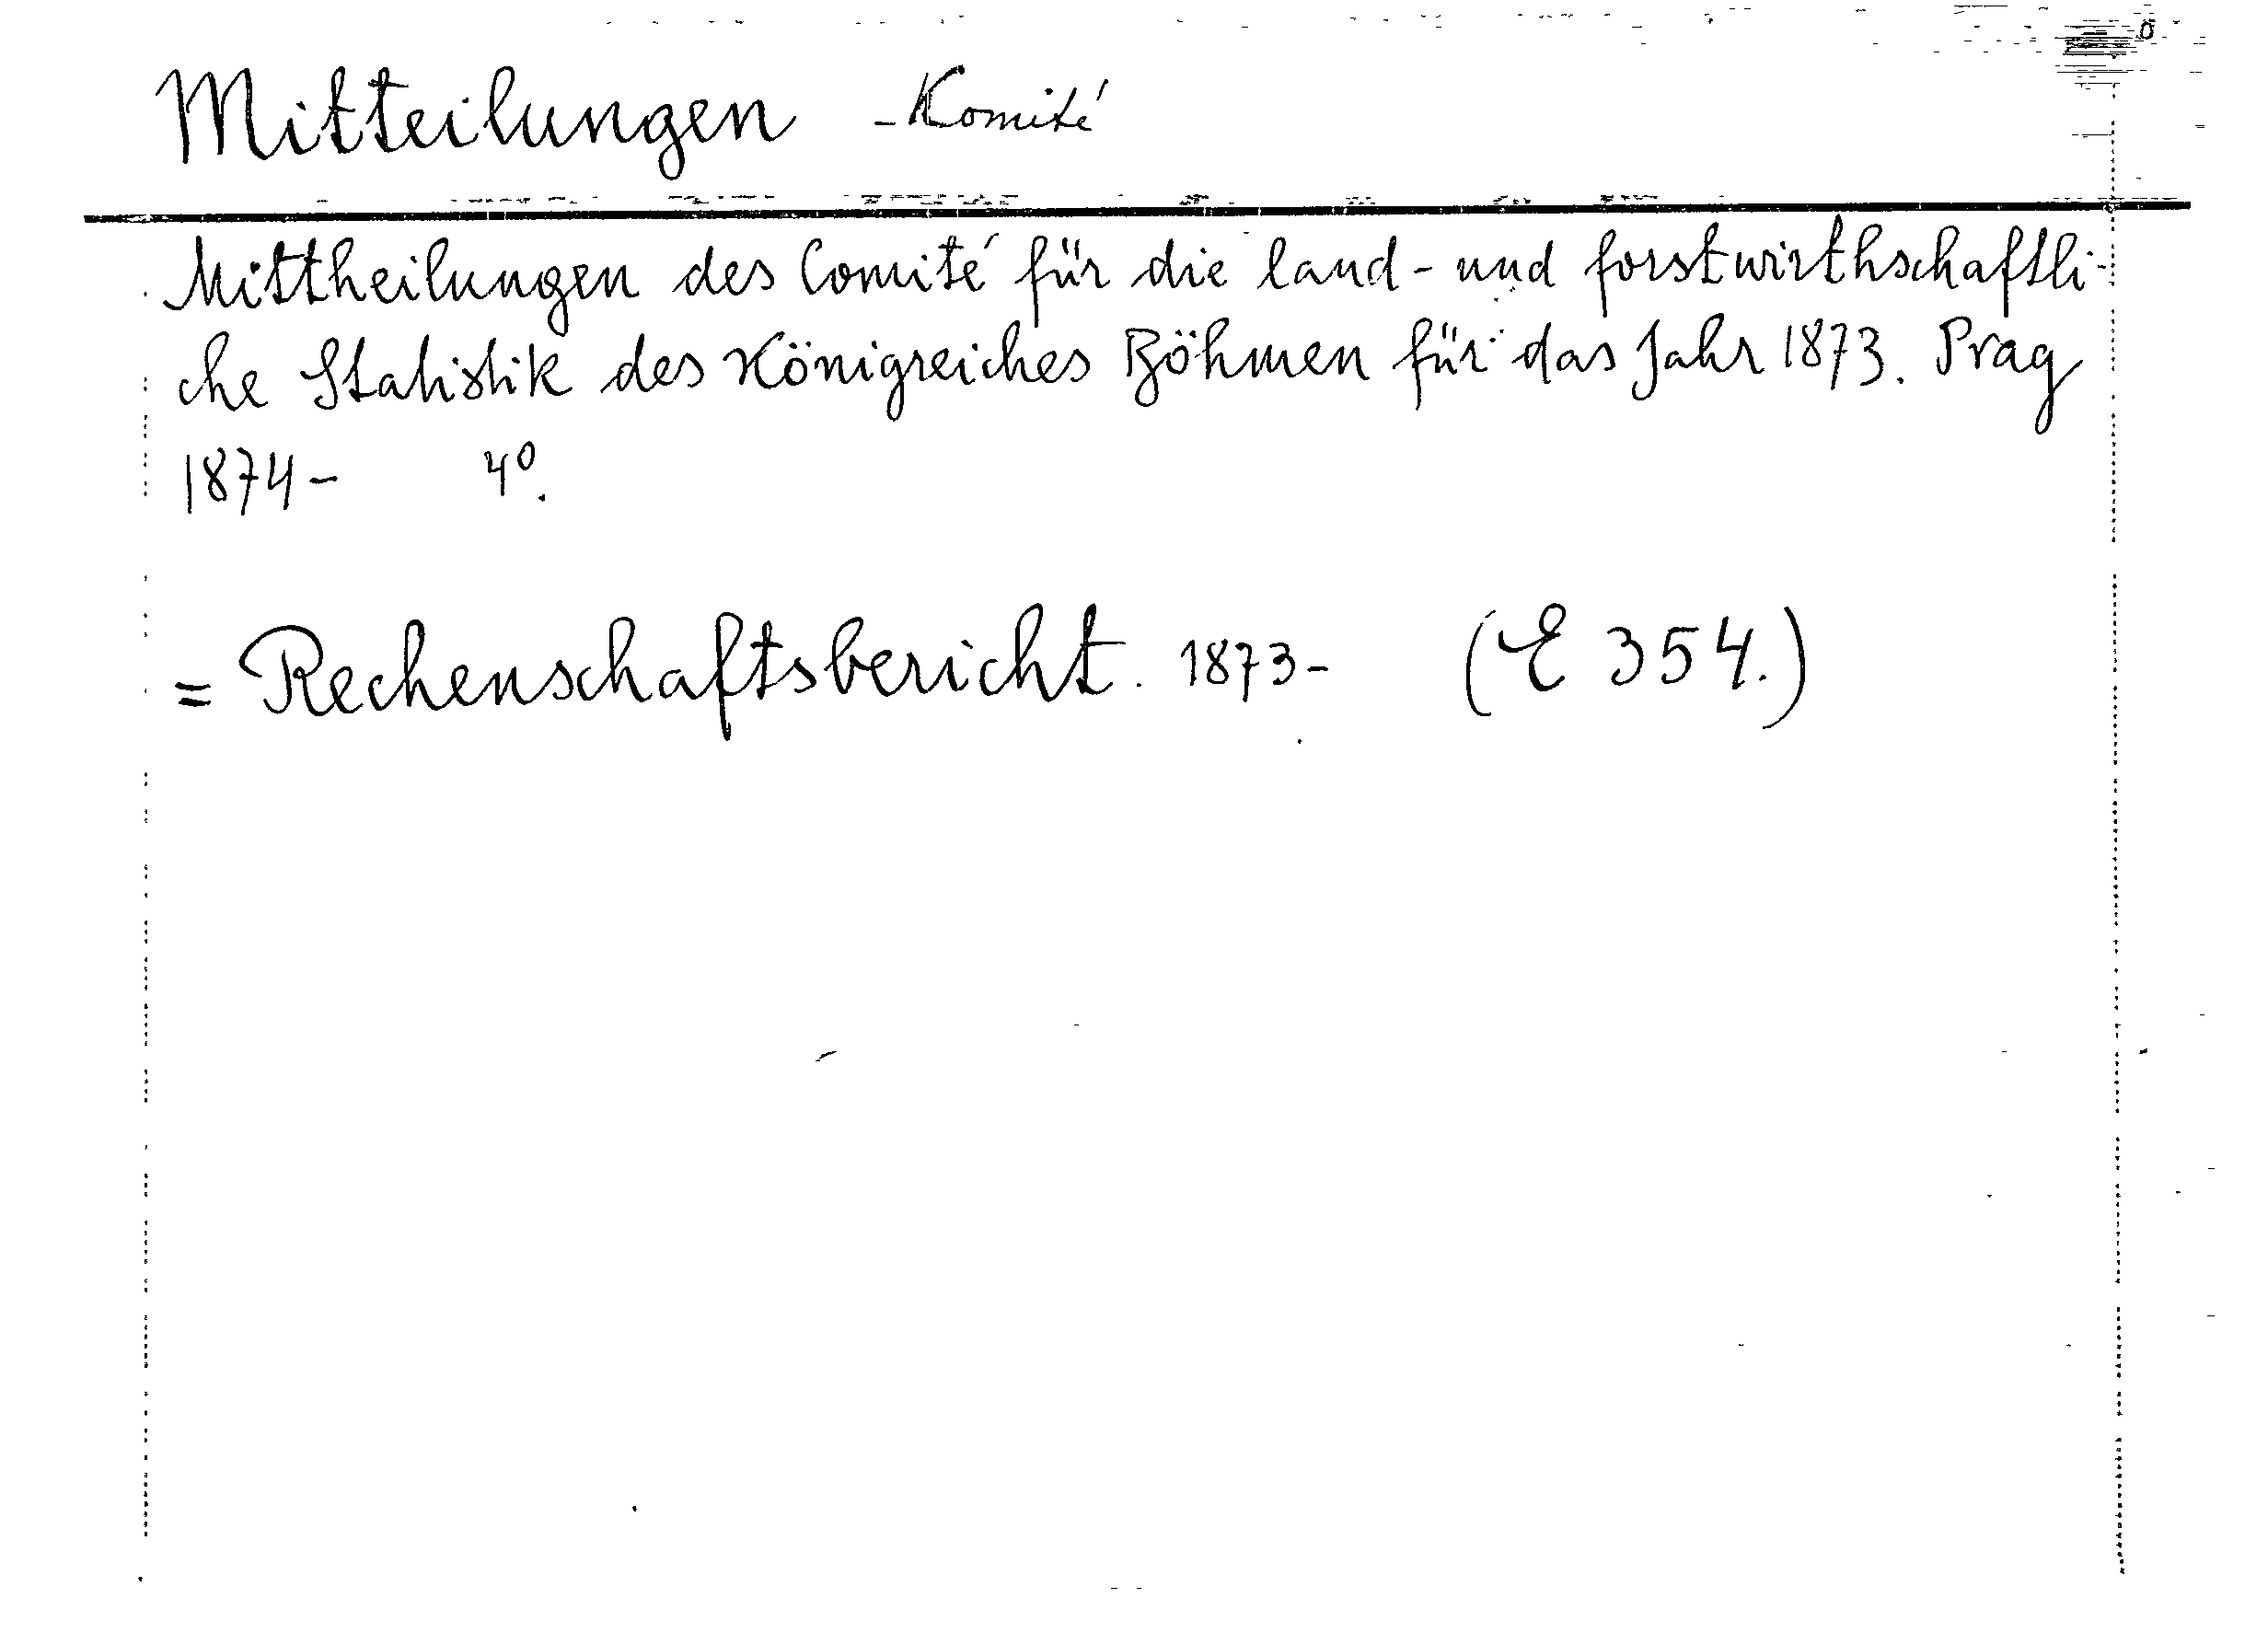 Mitteilungen - Komité
Mittheilungen des Comité für die land- und forstwirthschaftli-
che Statistik des Königreiches Böhmen für das Jahr 1873. Prag
1874- 4⁰.
= Rechenschaftsbericht. 1873- (E 354.)